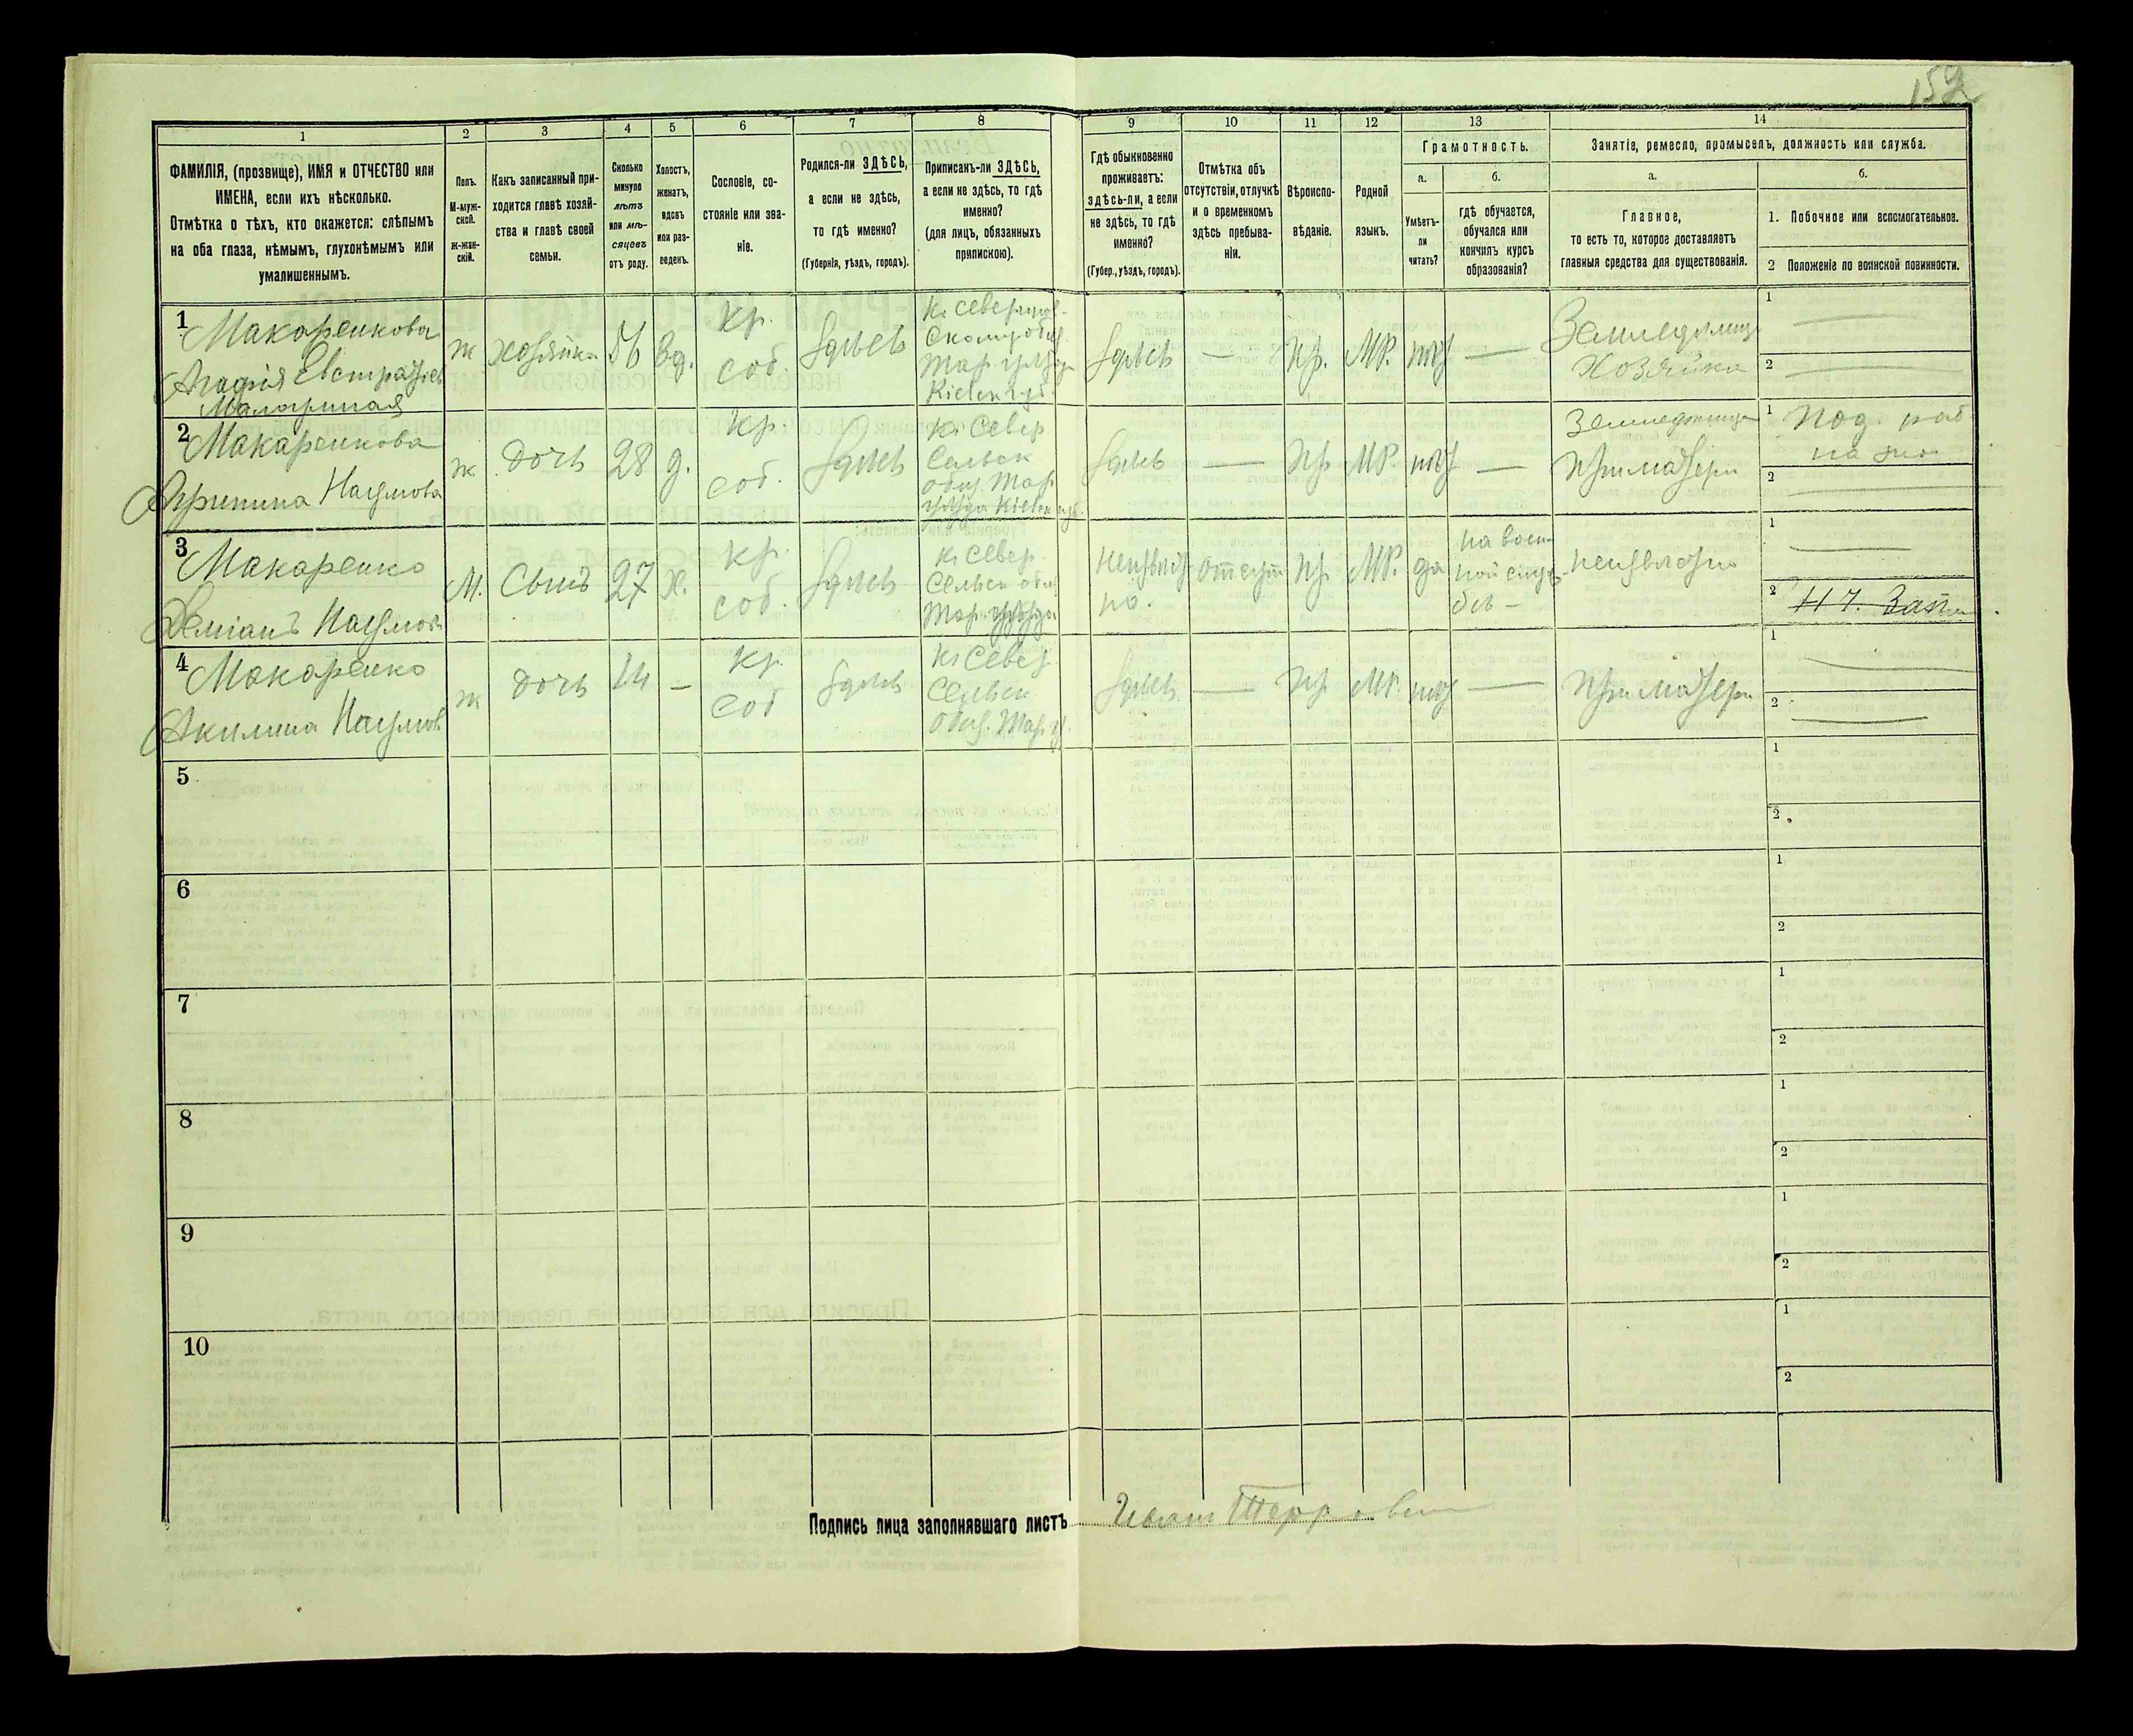 152
1
2
3
4
5
6
7
8
9
10
11
12
13
14
ФАМИЛІЯ, (прозвище), ИМЯ и ОТЧЕСТВО или
ИМЕНА, если ихъ нѣсколько.
Отмѣтка о тѣхъ, кто окажется: слѣпымъ
на оба глаза, нѣмымъ, глухонѣмымъ или
умалишеннымъ.
Полъ.
М-муж-
ской.
Ж-жен-
скій.
Какъ записанный при-
ходится главѣ хозяй-
ства и главѣ своей
семьи.
Сколько
минуло
лѣтъ
или мѣ-
сяцевъ
отъ роду.
Холостъ,
женатъ,
вдовъ
или раз-
веденъ.
Сословіе, со-
стояніе или зва-
ніе.
Родился-ли ЗДѢСЬ,
а если не здѣсь,
то гдѣ именно?
(Губернія, уѣздъ, городъ).
Приписанъ-ли ЗДѢСЬ,
а если не здѣсь, то гдѣ
именно?
(для лицъ, обязанныхъ
припискою).
Гдѣ обыкновенно
проживаетъ:
здѣсь-ли, а если
не здѣсь, то гдѣ
именно?
(Губер., уѣздъ, городъ).
Отмѣтка объ
отсутствіи, отлучкѣ
и о временномъ
здѣсь пребыва-
ніи.
Вѣроиспо-
вѣданіе.
Родной
языкъ.
Грамотность.
а.
Умѣетъ-
ли
читать?
б.
гдѣ обучается,
обучался или
кончилъ курсъ
образованія?
Занятіе, ремесло, промыселъ, должность или служба.
а.
Главное,
то есть то, которое доставляетъ
главныя средства для существованія.
б.
1. Побочное или вспомогательное.
2 Положеніе по воинской повинности.
1
Макаренкова
Агафія Евстратіев
ж
хозяйка
56
вд.
Кр.
соб.
Здѣсь
Здѣсь
—
Пр.
МР.
нѣт
—
Хозяйка
1
2
2
Макаренкова
Наумова
ж
дочь
28
д.
кр.
соб.
Здѣсь
К. Север
Сельск
общ Мар.
Здѣсь
—
Пр
МР.
нѣт
—
При матери
1
2
3
Макаренко
Деміанъ Наумов
М.
Сынъ
27
х.
кр.
соб.
Здѣсь
К. Север.
Сельск общ
неизвѣст
но.
отсут
Пр.
МР.
да
на воен-
ной служ-
бѣ —
неизвѣстно
1
2
Н Ч. Запа
4
Макаренко
Акилина Наумов
ж
дочь
14
—
кр.
соб
Здѣсь
К. Север
Сельск
общ. Мар. у.
Здѣсь
—
Пр
МР.
нѣт
—
При матери
1
2
5
1
2
6
1
2
7
1
2
8
1
2
9
1
2
10
1
2
Подпись лица заполнявшаго листъ